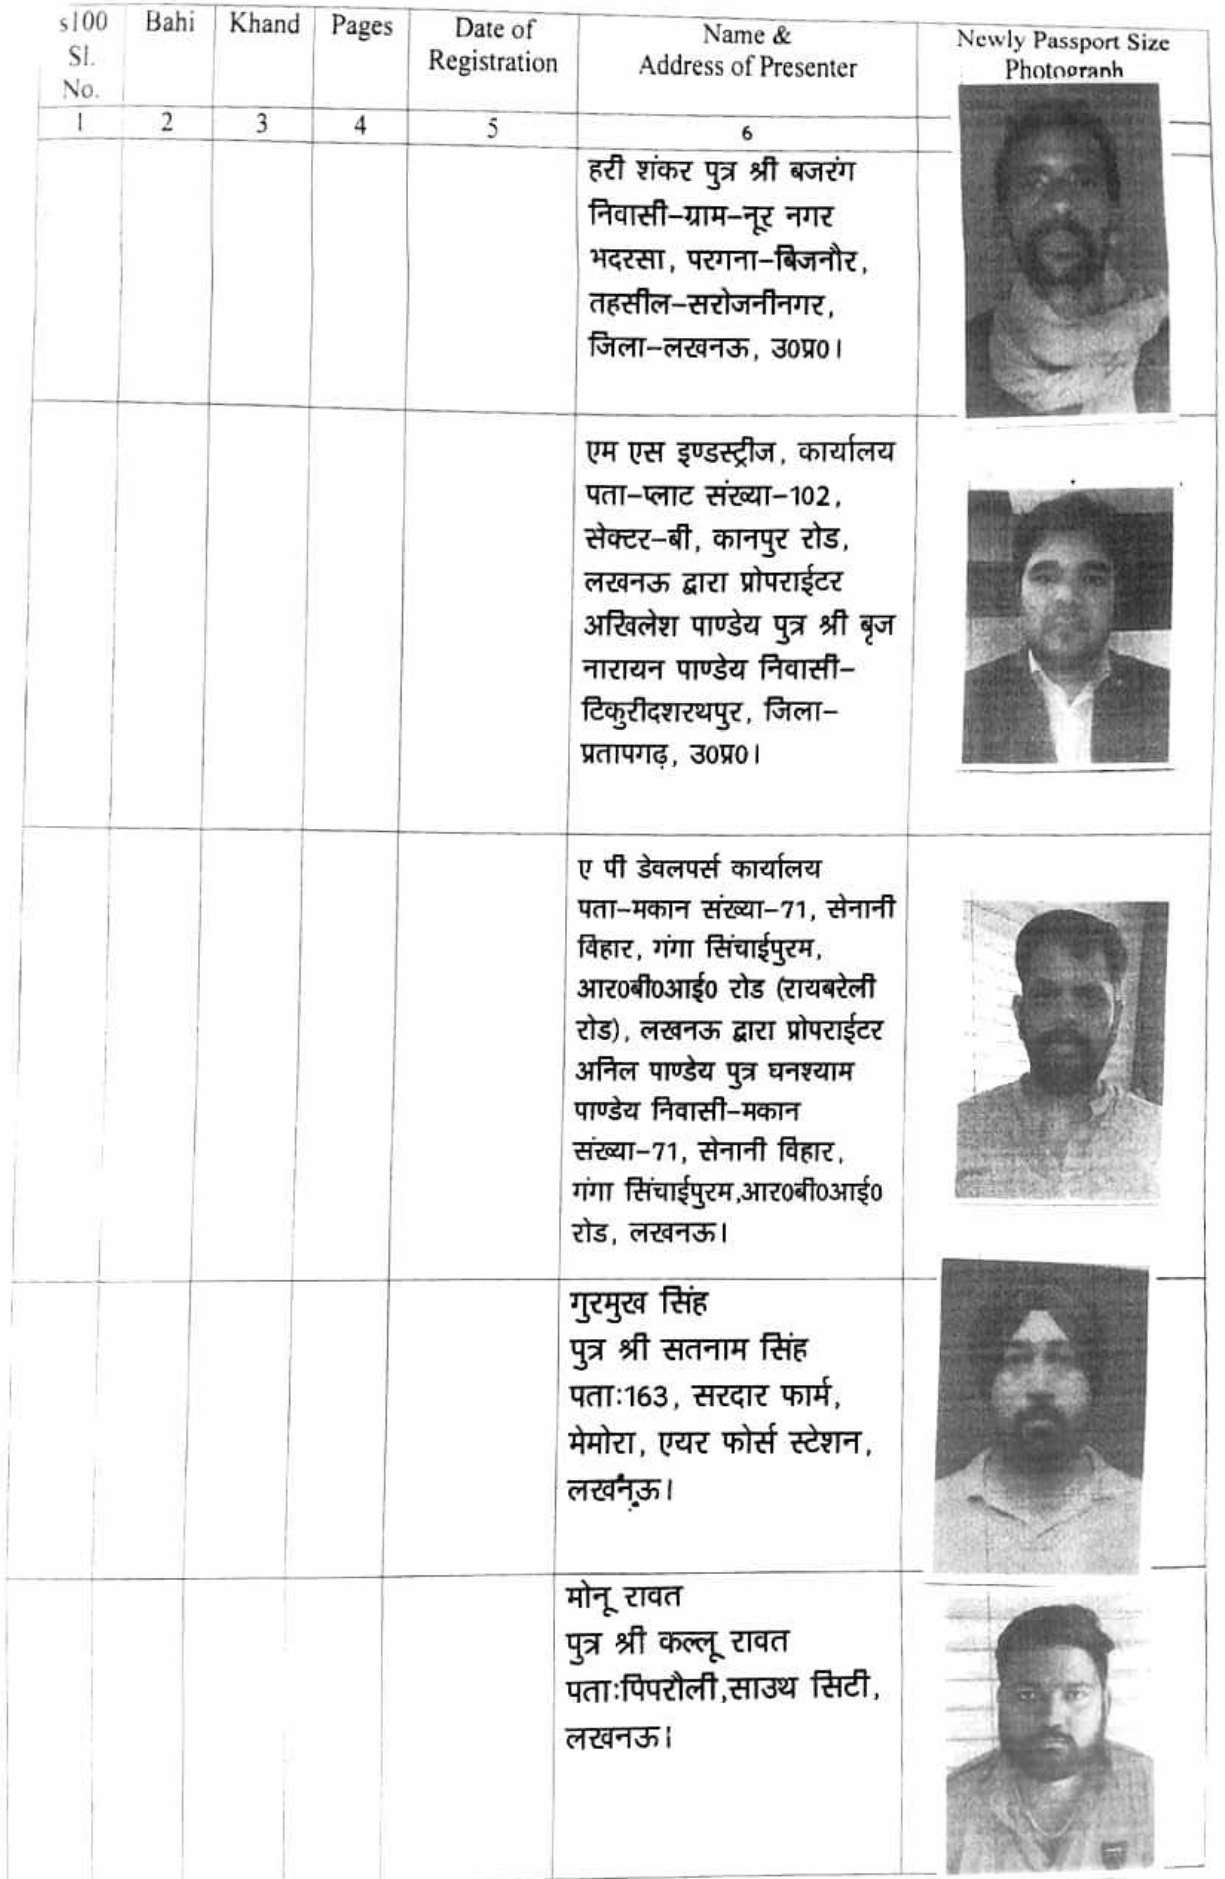 s100 Sl. No. Bahi Khand Pages Date of Registration Name & Address of Presenter Newly Passport Size Photograph
1 2 3 4 5 6
हरी शंकर पुत्र श्री बजरंग
निवासी–ग्राम–नूर नगर
भदरसा, परगना–बिजनौर,
तहसील–सरोजनीनगर,
जिला–लखनऊ, उ0प्र0।
एम एस इण्डस्ट्रीज, कार्यालय
पता–प्लाट संख्या–102,
सेक्टर–बी, कानपुर रोड,
लखनऊ द्वारा प्रोपराईटर
अखिलेश पाण्डेय पुत्र श्री बृज
नारायन पाण्डेय निवासी–
टिकुरीदशरथपुर, जिला–
प्रतापगढ़, उ0प्र0।
ए पी डेवलपर्स कार्यालय
पता–मकान संख्या–71, सेनानी
विहार, गंगा सिंचाईपुरम,
आर0बी0आई0 रोड (रायबरेली
रोड), लखनऊ द्वारा प्रोपराईटर
अनिल पाण्डेय पुत्र घनश्याम
पाण्डेय निवासी–मकान
संख्या–71, सेनानी विहार,
गंगा सिंचाईपुरम,आर0बी0आई0
रोड, लखनऊ।
गुरमुख सिंह
पुत्र श्री सतनाम सिंह
पता:163, सरदार फार्म,
मेमोरा, एयर फोर्स स्टेशन,
लखनऊ।
मोनू रावत
पुत्र श्री कल्लू रावत
पता:पिपरौली,साउथ सिटी,
लखनऊ।